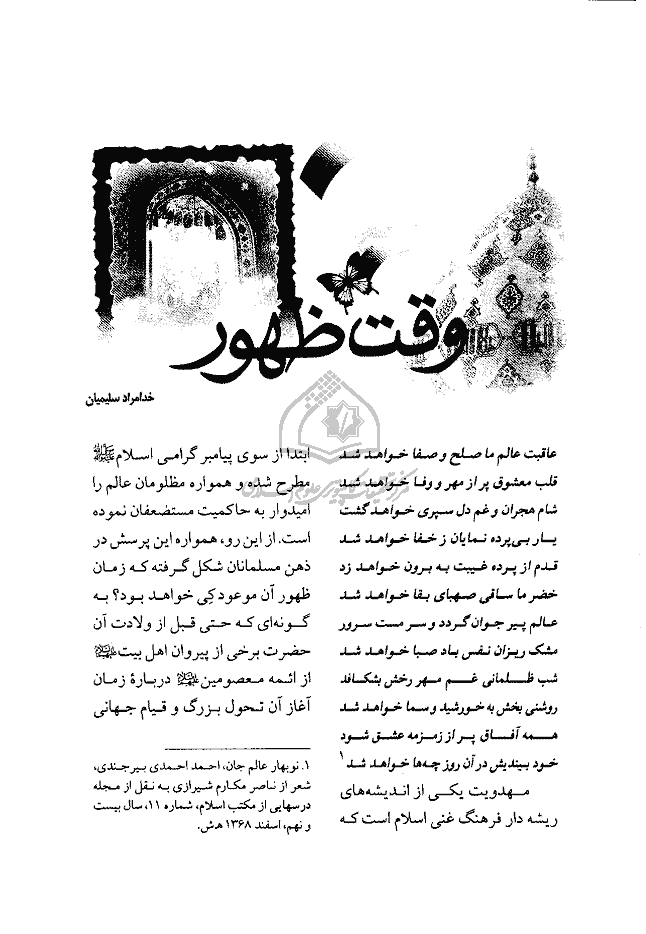 وقت ظهور
خدامراد سلیمیان
عاقبت عالم ما صلح و صفا خواهد شد
قلب معشوق پر از مهر و وفا خواهد شد
شام هجران و غم دل سپری خواهد گشت
یار بی‌پرده نمایان ز خفا خواهد شد
قدم از پرده غیبت به برون خواهد زد
خضر ما ساقی صهبای بقا خواهد شد
عالم پیر جوان گردد و سر مست سرور
مشک ریزان نفس باد صبا خواهد شد
شب ظلمانی غم مهر رخش بشکافد
روشنی بخش به خورشید و سما خواهد شد
همه آفاق پر از زمزمه عشق شود
خود بیندیش در آن روز چه‌ها خواهد شد ۱
مهدویت یکی از اندیشه‌های
ریشه دار فرهنگ غنی اسلام است که
ابتدا از سوی پیامبر گرامی اسلام ﷺ
مطرح شده و همواره مظلومان عالم را
امیدوار به حاکمیت مستضعفان نموده
است. از این رو، همواره این پرسش در
ذهن مسلمانان شکل گرفته که زمان
ظهور آن موعود کِی خواهد بود؟ به
گونه‌ای که حتی قبل از ولادت آن
حضرت برخی از پیروان اهل بیت
از ائمه معصومین دربارۀ زمان
آغاز آن تحول بزرگ و قیام جهانی
۱. نوبهار عالم جان، احمد احمدی بیرجندی،
شعر از ناصر مکارم شیرازی به نقل از مجله
درسهایی از مکتب اسلام، شماره ۱۱، سال بیست
و نهم، اسفند ۱۳۶۸ ه‍.ش.